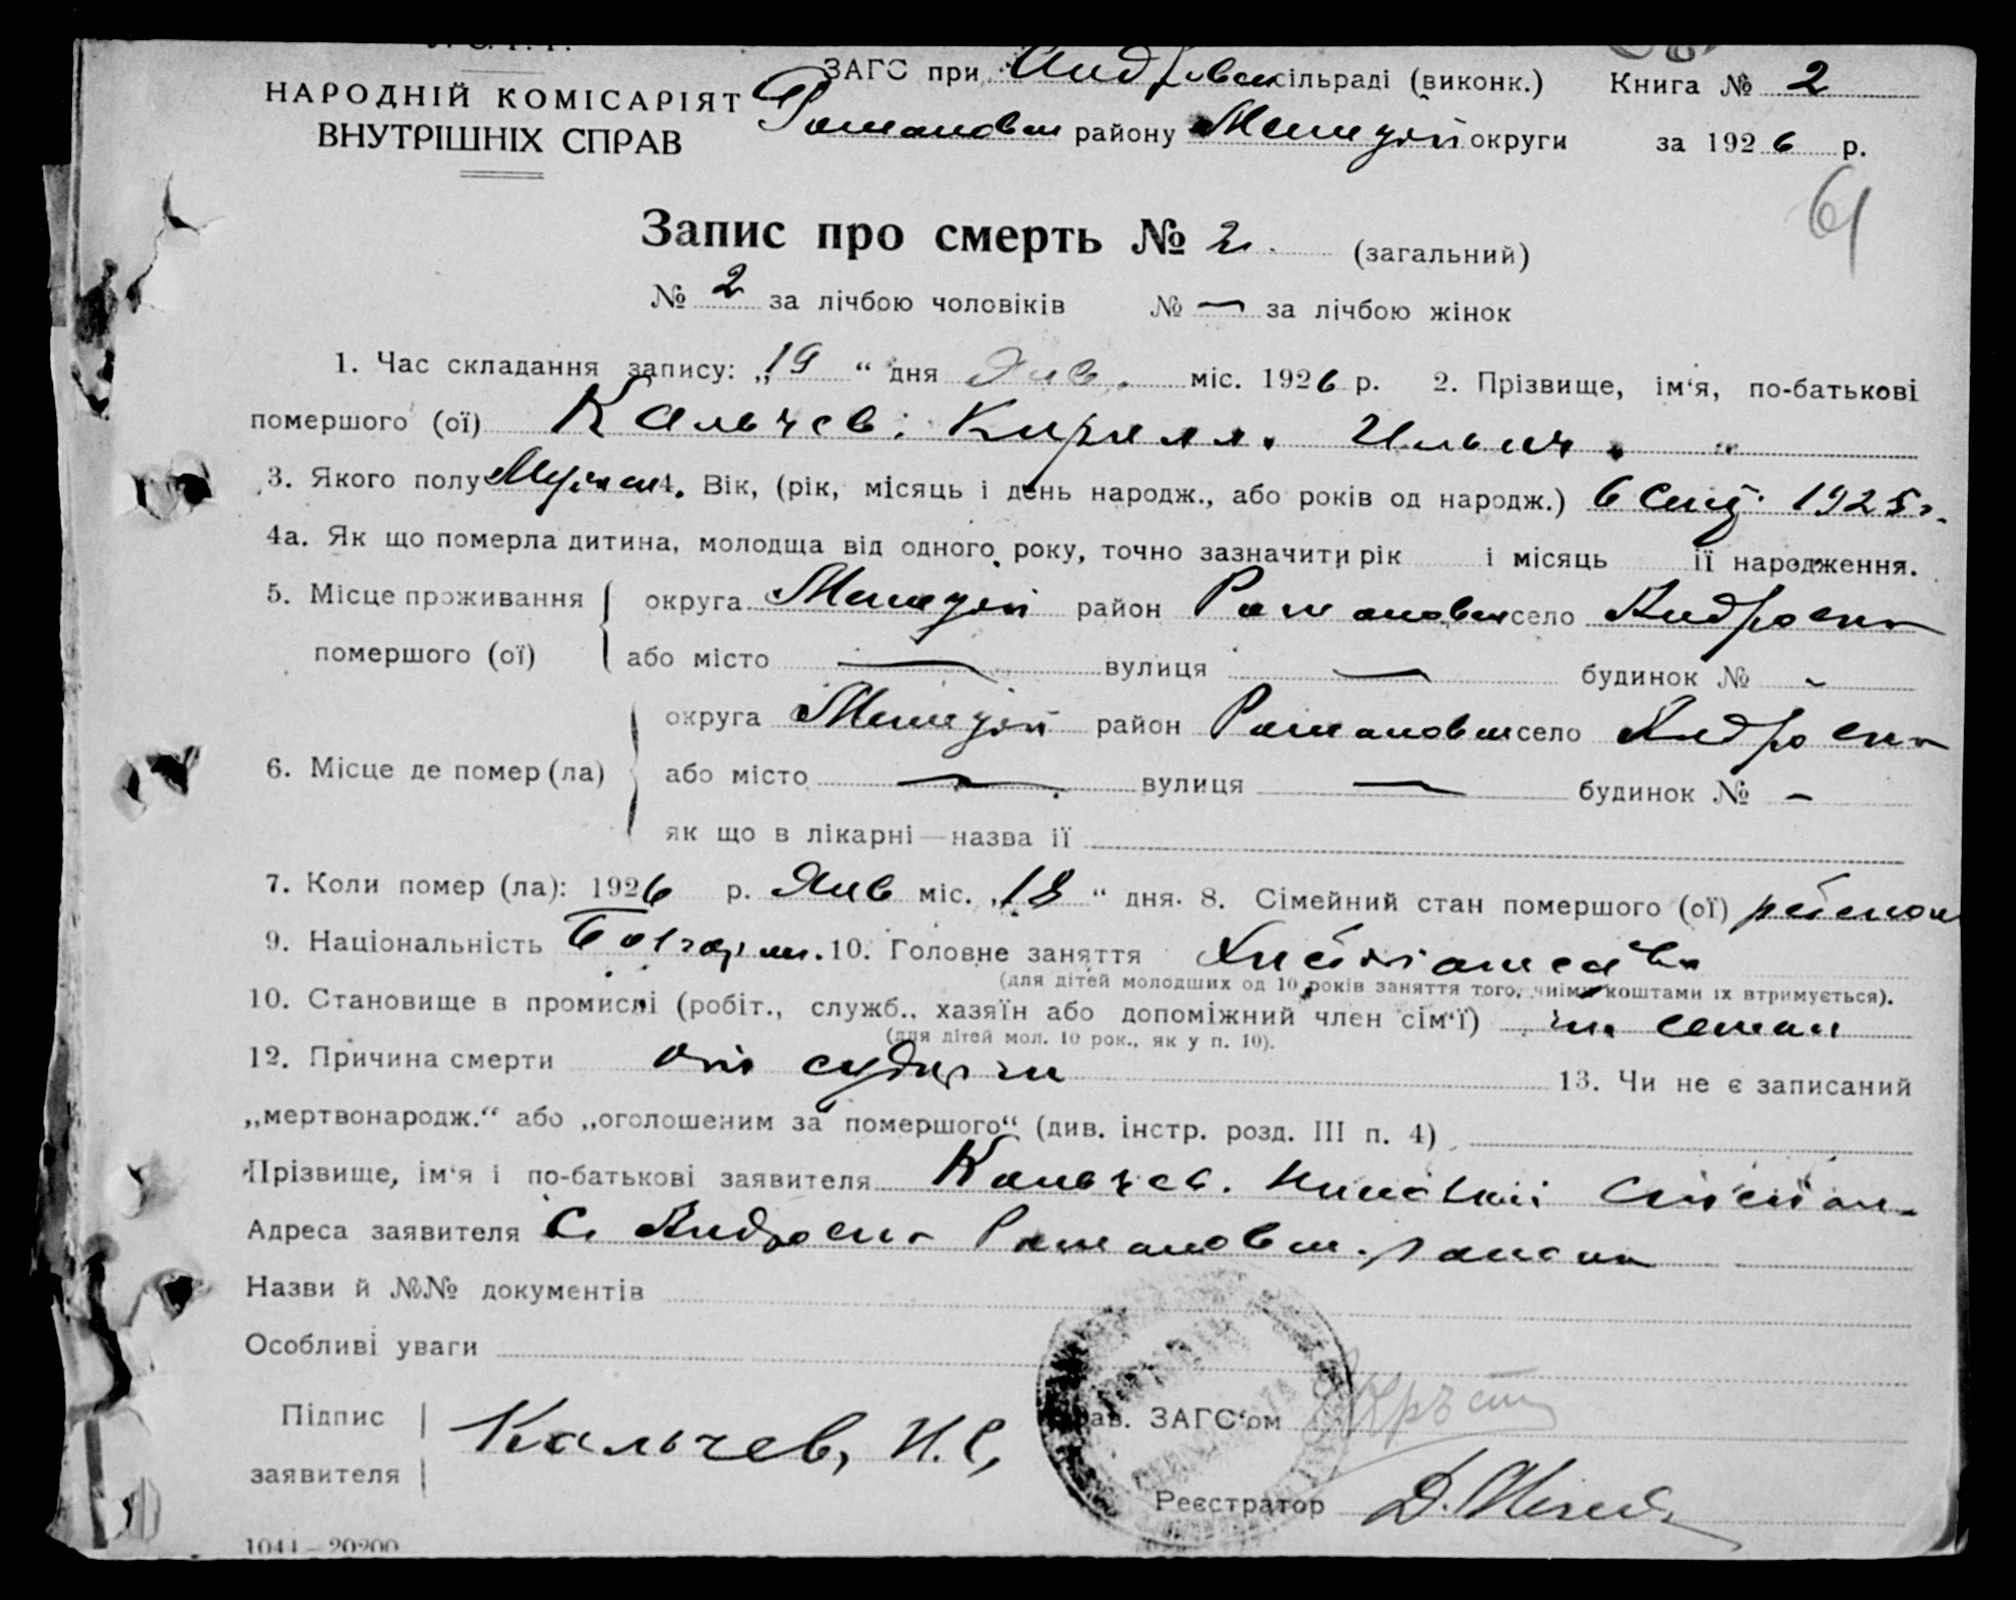 ЗАГС при сільраді (виконк.) Книга № 2
НАРОДНІЙ КОМІСАРІЯТ
Романовск району округи за 1926 р.
ВНУТРІШНІХ СПРАВ
61
Запис про смерть № 2. (загальний)
№ 2 за лічбою чоловіків № — за лічбою жінок
1. Час складання запису: „19“ дня Янв. міс. 1926 р. 2. Прізвище, ім‘я, по-батькові
помершого (ої) Кальчев. Кирилл. Ильич.
3. Якого полу Мужск 4. Вік, (рік, місяць і день народж., або років од народж.) 6 1925 г.
4а. Як що померла дитина, молодща від одного року, точно зазначити рік і місяць її народження.
5. Місце проживання округа район Романовск село Андровка
помершого (ої) або місто — вулиця — будинок № -
округа район Романовск село Андровка
6. Місце де помер (ла) або місто — вулиця — будинок № —
як що в лікарні—назва її
7. Коли помер (ла): 1926 р. Янв міс. „18“ дня. 8. Сімейний стан помершого (ої)
9. Національність Болгарин. 10. Головне заняття
(для дітей молодших од 10 років заняття того, чиїми коштами їх втримується).
10. Становище в промислі (робіт., служб., хазяїн або допоміжний член сім‘ї)
(для дітей мол. 10 рок., як у п. 10).
12. Причина смерти от 13. Чи не є записаний
„мертвонародж.“ або „оголошеним за помершого“ (див. інстр. розд. III п. 4)
Прізвище, ім‘я і по-батькові заявителя Кальчев.
Адреса заявителя С. Андровка Романовск. района
Назви й №№ документів
Особливі уваги
Підпис
заявителя
Кальчев, И. С,
Зав. ЗАГС‘ом
Реєстратор
1041—20200